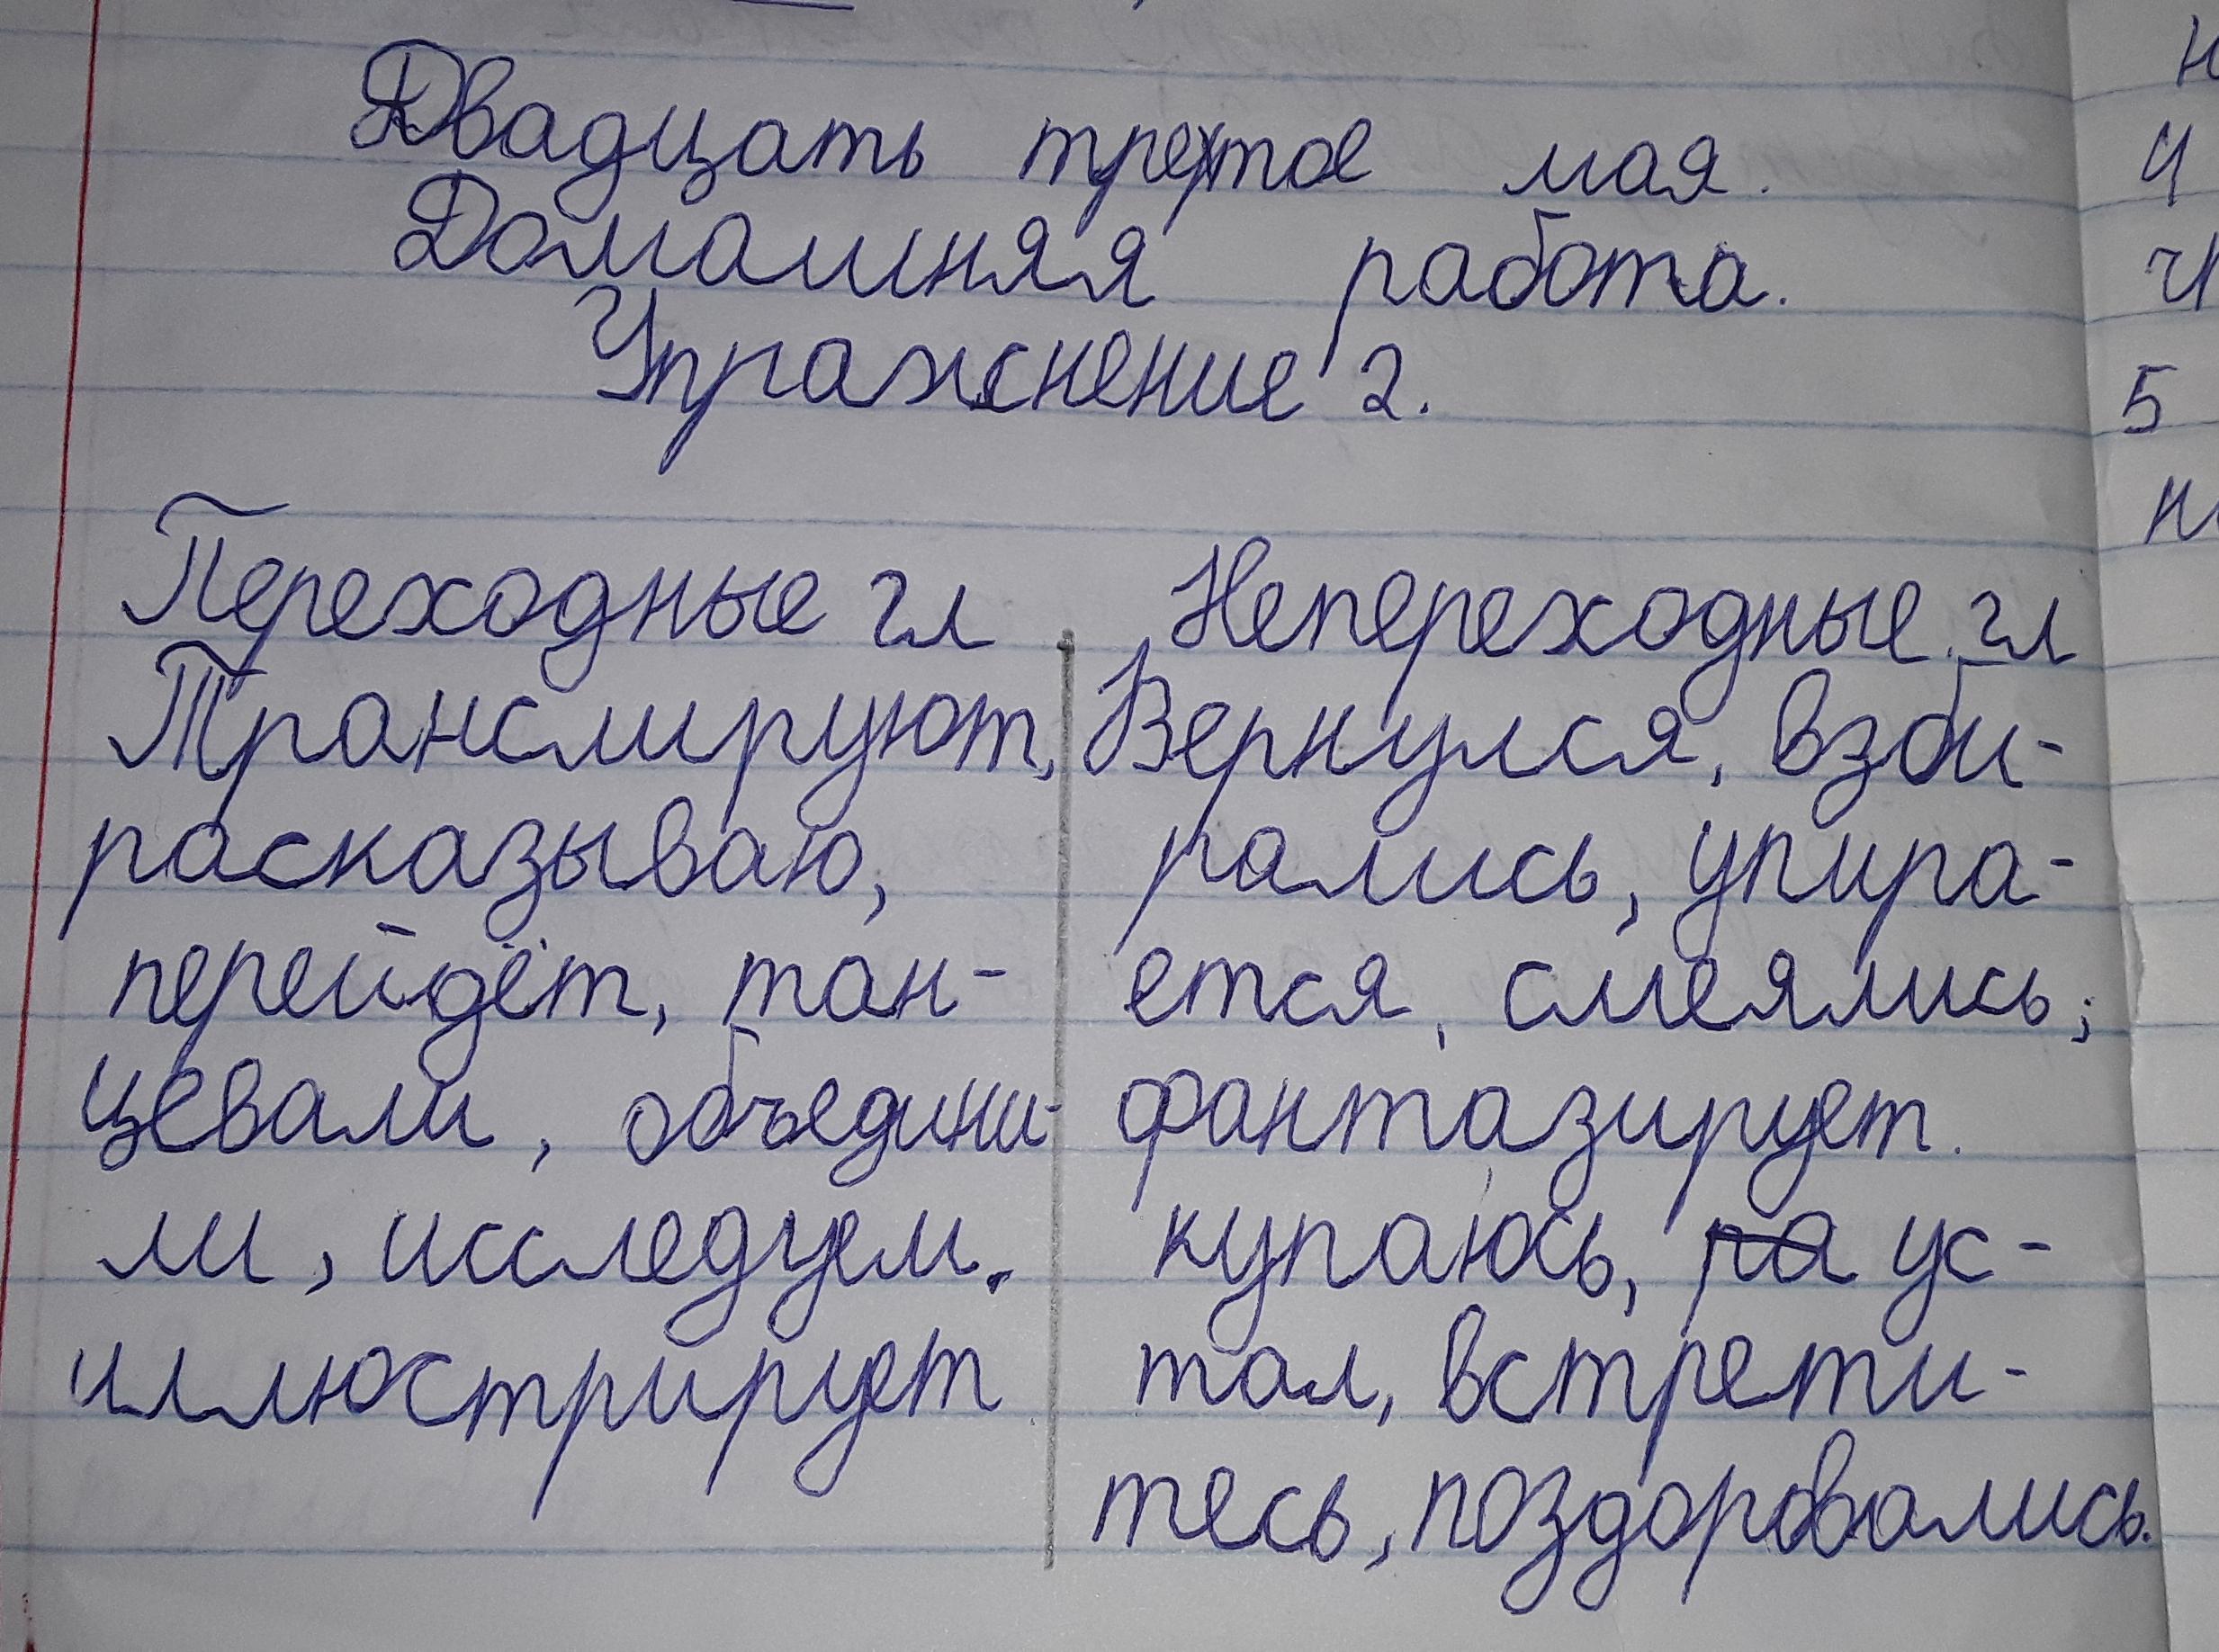 Двадцать третое мая.
Домашняя работа.
Упражнение 2.
Переходные гл
Транслируют,
расказываю,
перейдёт, тан-
цевали, объедини-
ли, исследуем.
иллюстрирует
Непереходные гл
Вернулся, взби-
рались, упира-
ется, смеялись;
фантазирует.
купаюсь, ра ус-
тал, встрети-
тесь, поздоровались.
5